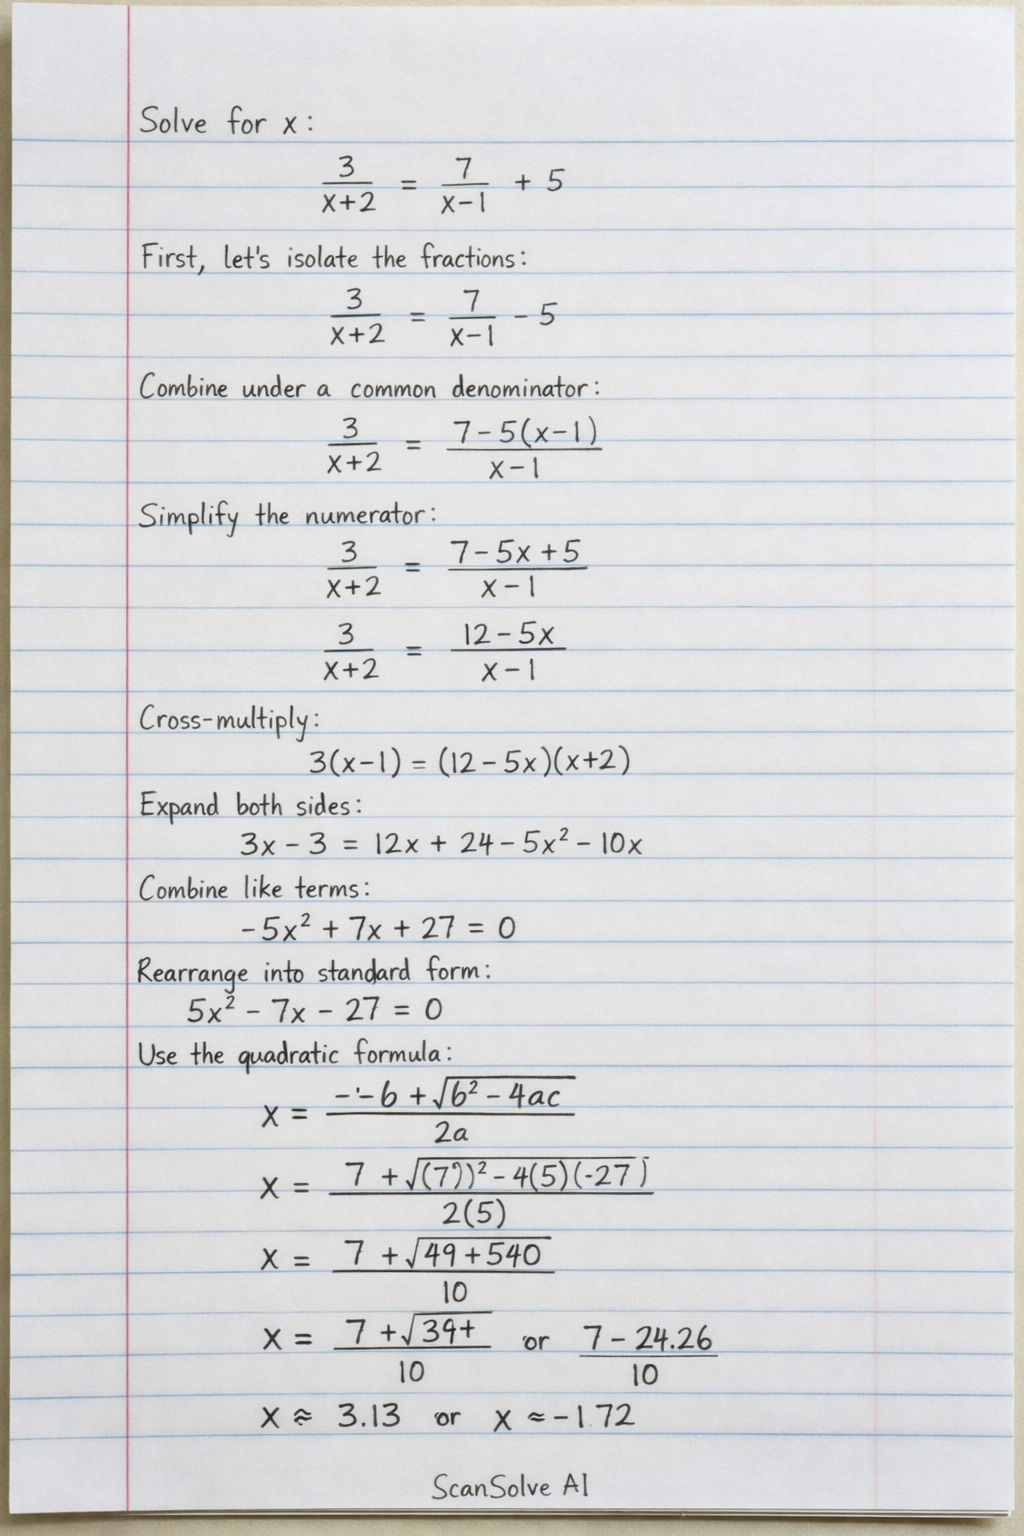 Solve for x:
3/(x+2) = 7/(x-1) + 5
First, let's isolate the fractions:
3/(x+2) = 7/(x-1) - 5
Combine under a common denominator:
3/(x+2) = (7-5(x-1))/(x-1)
Simplify the numerator:
3/(x+2) = (7-5x+5)/(x-1)
3/(x+2) = (12-5x)/(x-1)
Cross-multiply:
3(x-1) = (12-5x)(x+2)
Expand both sides:
3x - 3 = 12x + 24 - 5x² - 10x
Combine like terms:
-5x² + 7x + 27 = 0
Rearrange into standard form:
5x² - 7x - 27 = 0
Use the quadratic formula:
x = (--6 + √(6² - 4ac))/(2a)
x = (7 + √((7))² - 4(5)(-27))/(2(5))
x = (7 + √(49+540))/10
x = (7 + √(39+))/10 or (7 - 24.26)/10
x ≈ 3.13 or x ≈ -1.72
ScanSolve AI